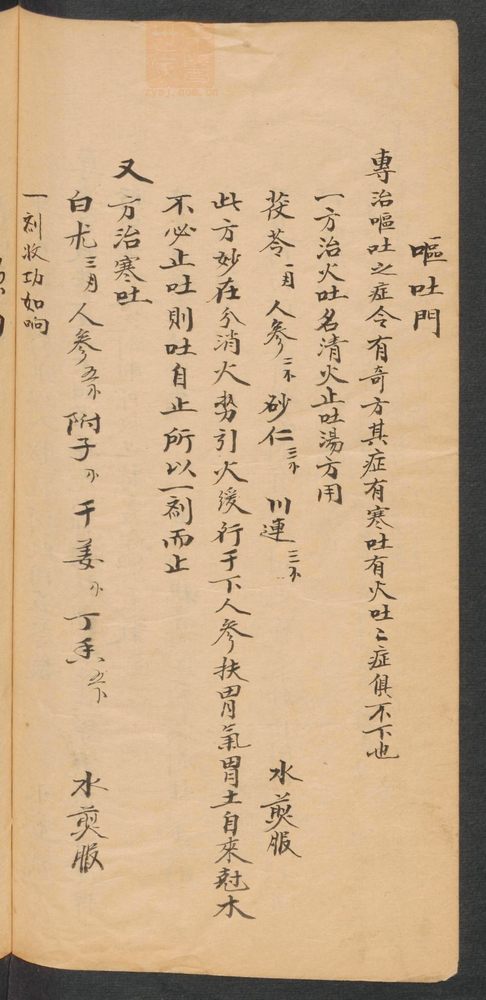 嘔吐門
專治嘔吐之症令有奇方其症有寒吐有火吐二症俱不下也
一方治火吐名清火止吐湯方用
茯苓一月 人參二 砂仁三 川連三 水煎服
此方妙在分消火势引火緩行于下人參扶胃氣胃土自來尅木
不必止吐則吐自止所以一剤而止
又方治寒吐
白朮三月人參五附子 干姜 丁香五 水煎服
一剤收功如响